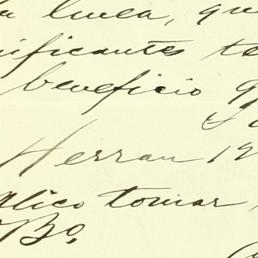 la linea, que
nificantes te
beneficio q
Herran 12
alico tomar
Bo.